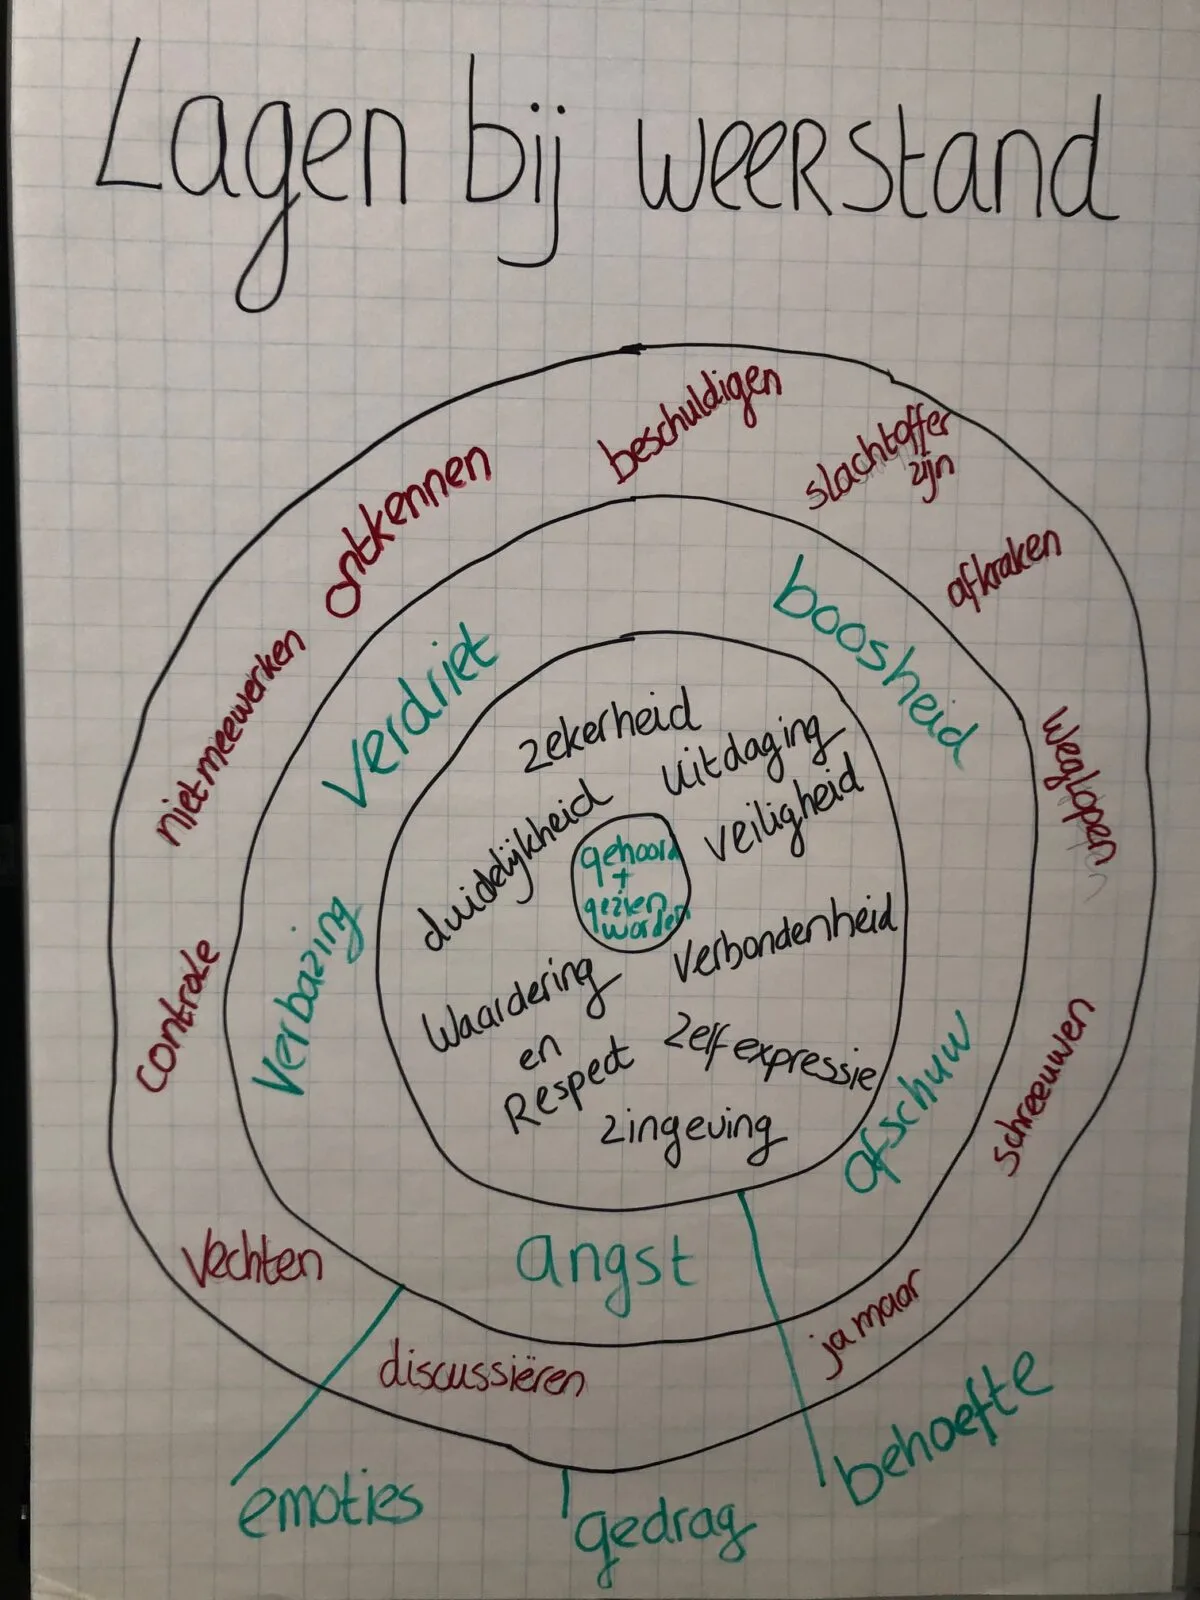 Lagen bij weerstand
beschuldigen
slachtoffer
zijn
ontkennen
afkraken
niet meewerken
weglopen
controle
schreeuwen
vechten
ja maar
discussiëren
boosheid
verdriet
verbazing
afschuw
angst
zekerheid
uitdaging
veiligheid
duidelijkheid
gehoord
+
gezien
worden
verbondenheid
Waardering
en
Respect
zelfexpressie
zingeving
emoties
gedrag
behoefte